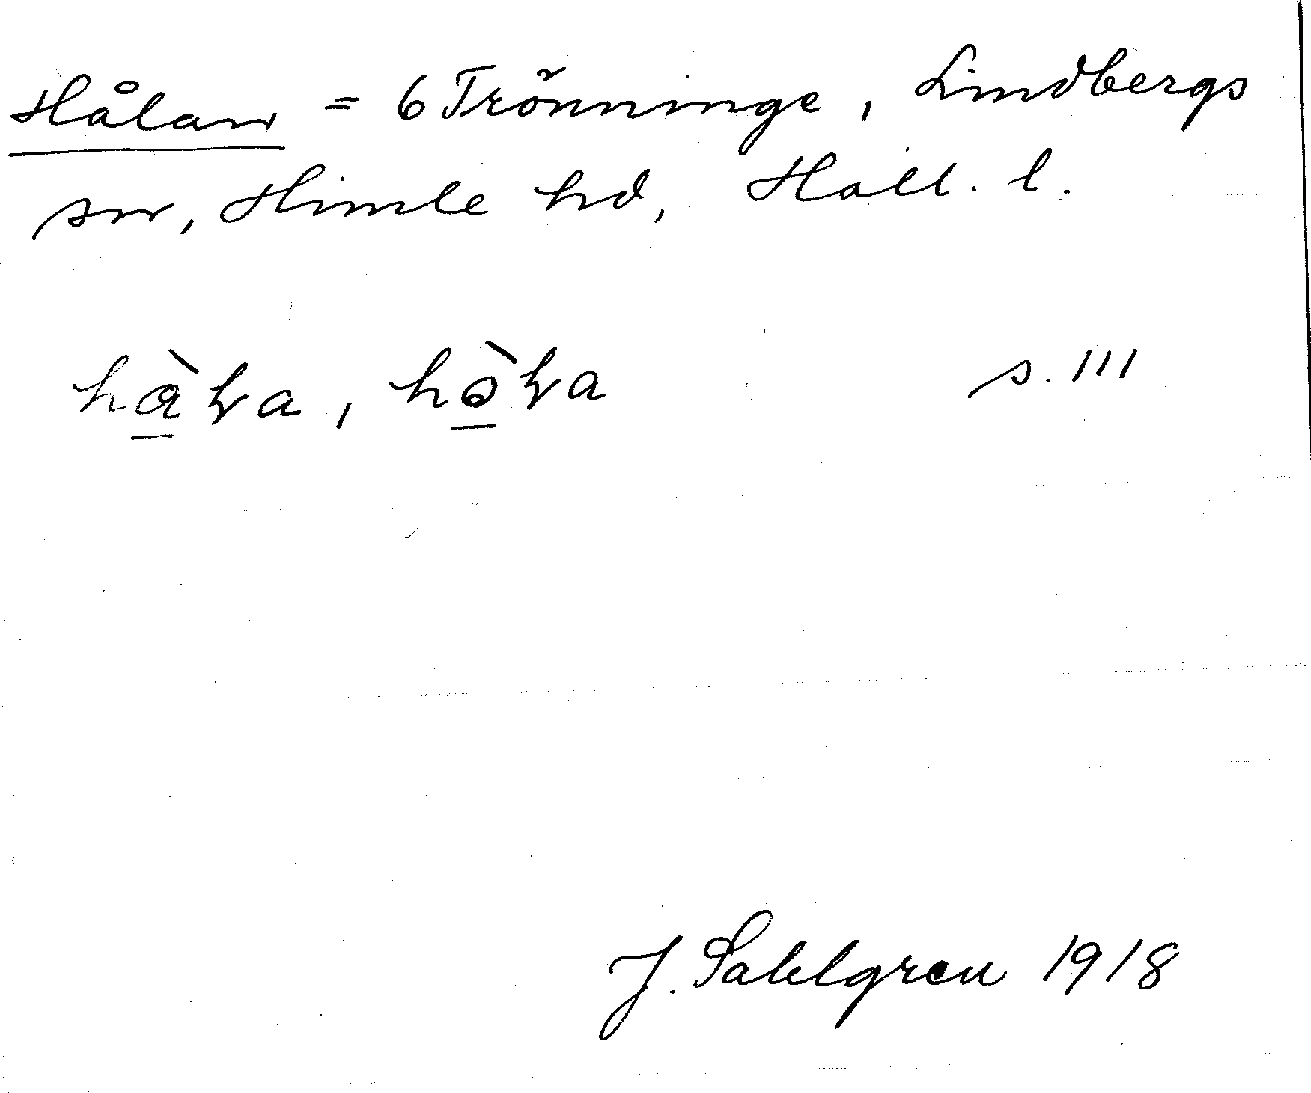 Hålan = 6 Trönninge, Lindbergs
sn, Himle hd, Hall. l.
hà̱ɫa, hò̱ɫa s. 111
J. Sahlgren 1918